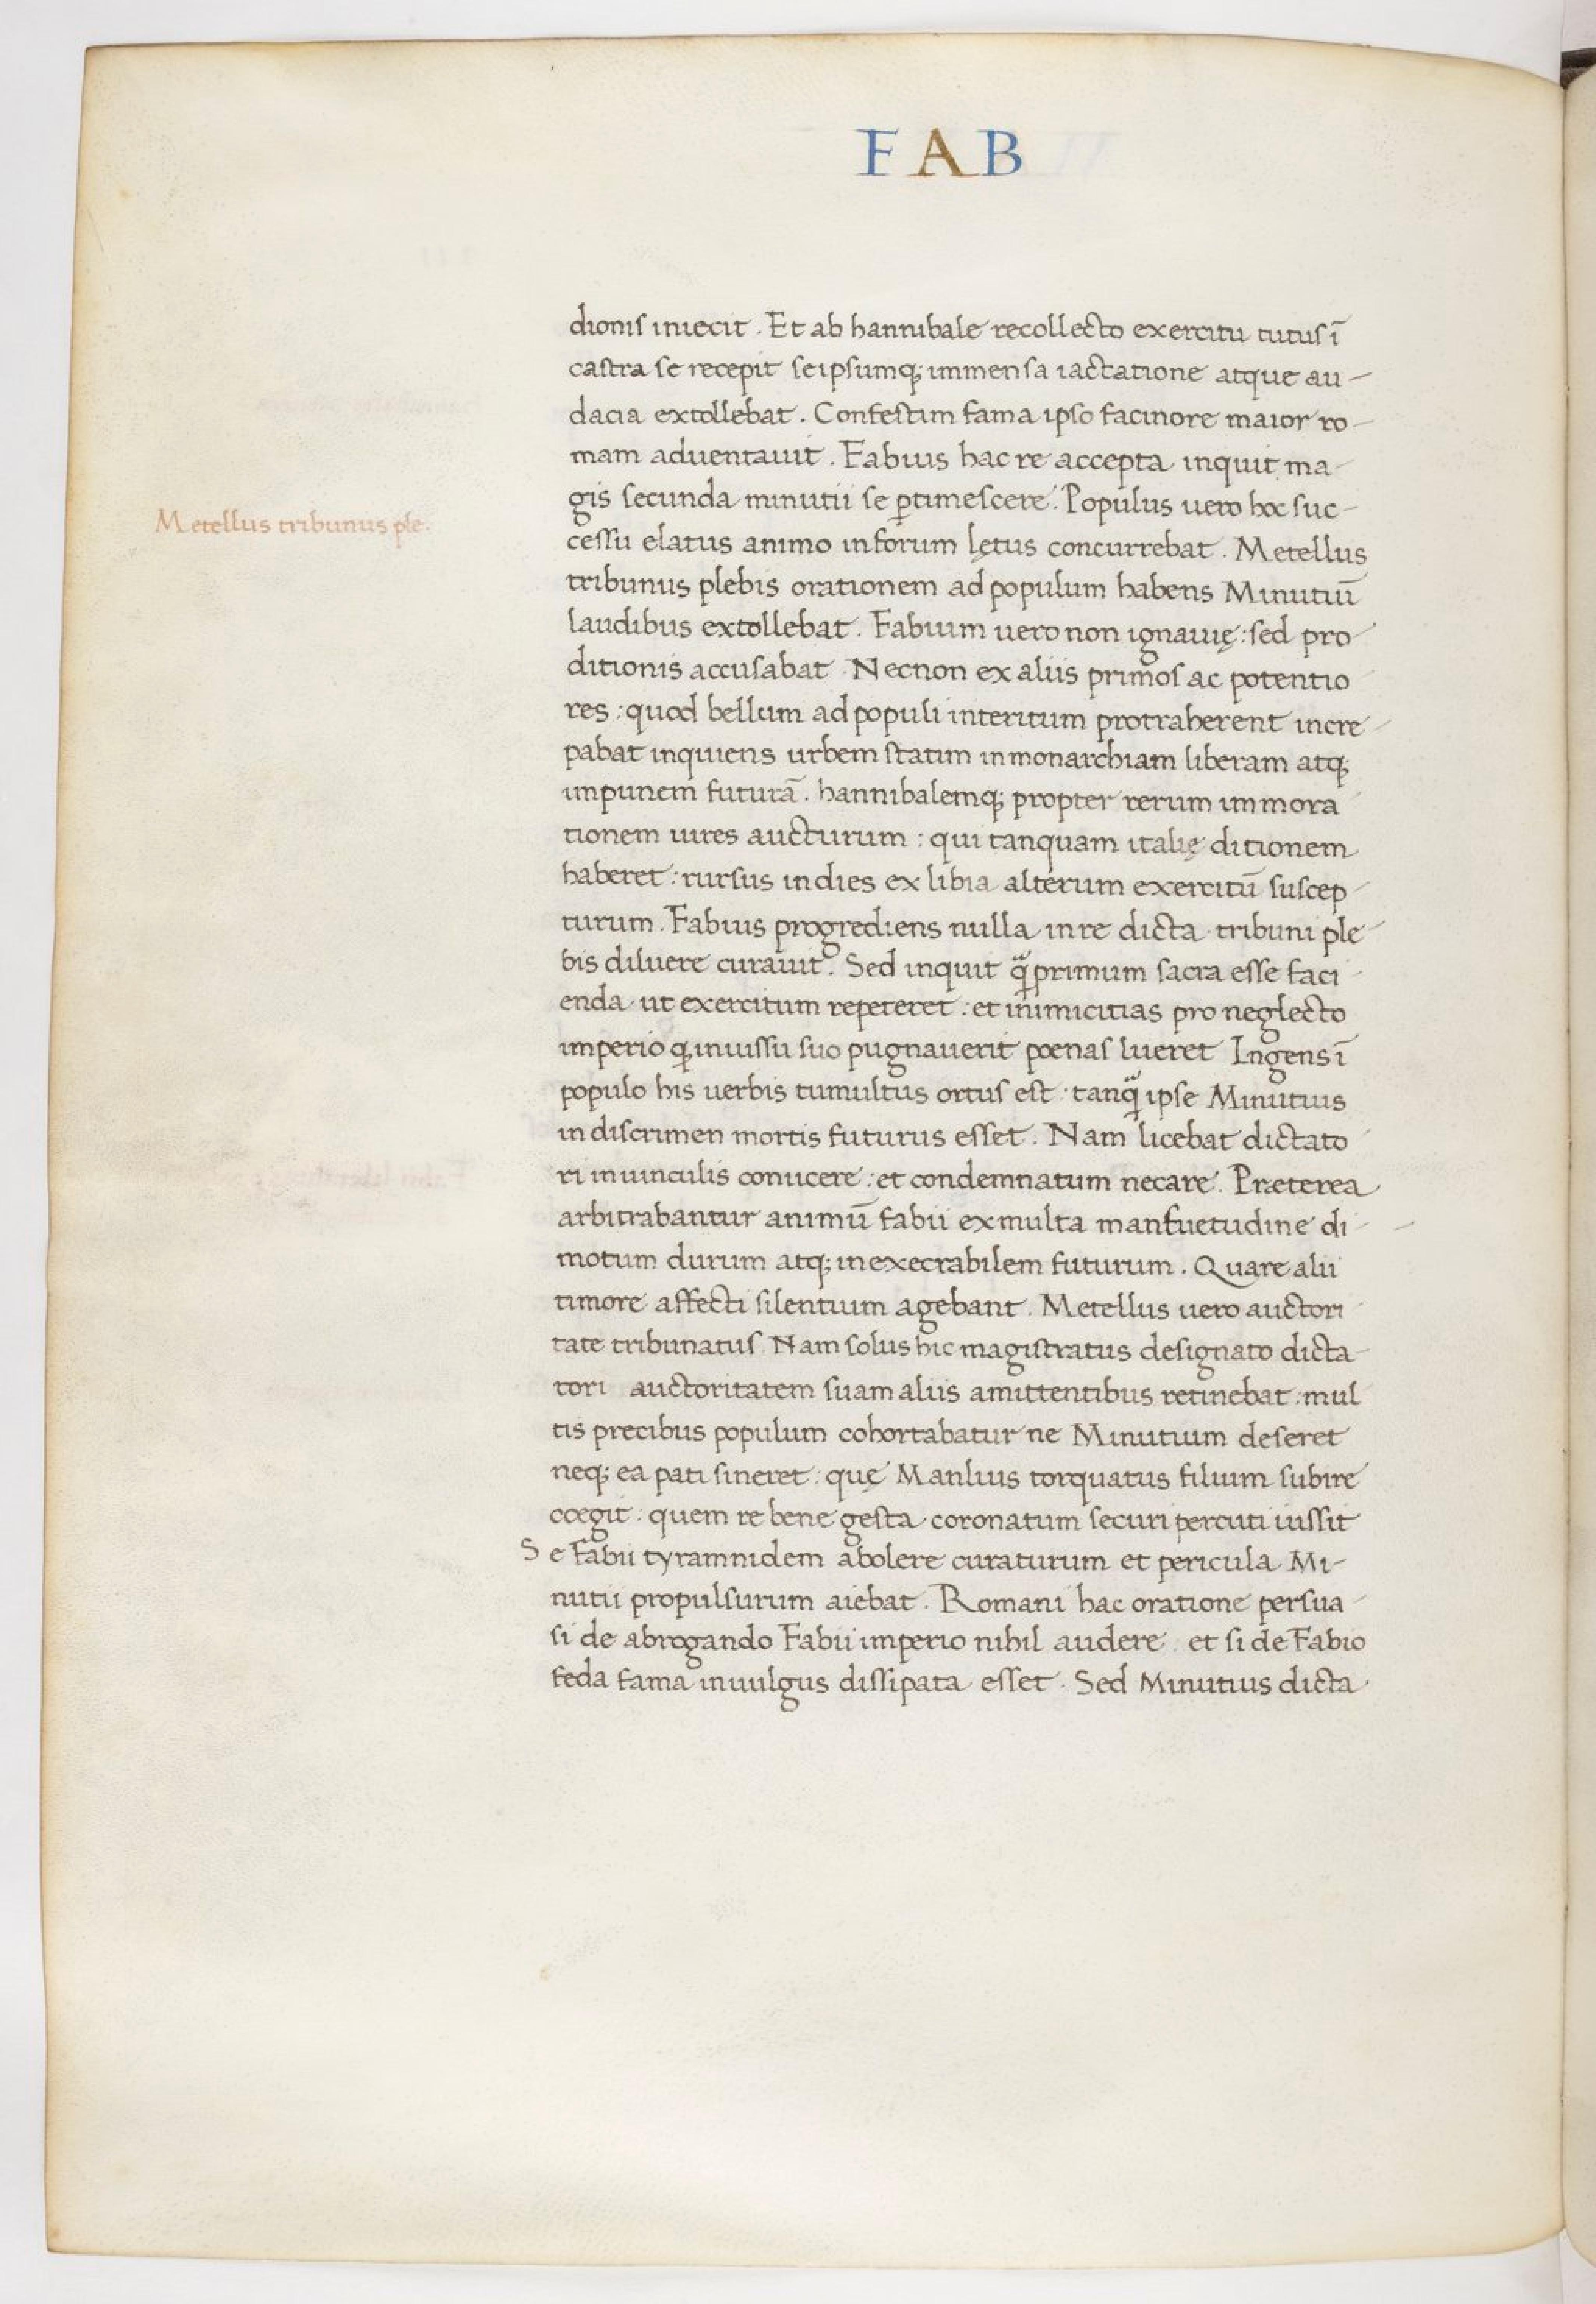 FAB
dionis iniecit . Et ab hannibale recollecto exercitu tutus ī
castra se recepit seipsumq; immensa iactatione atque au-
dacia extollebat . Confestim fama ipso facinore maior ro-
mam aduentauit . Fabius hac re accepta inquit ma-
gis secunda minutii se ꝑtimescere . Populus uero hoc suc-
Metellus tribunus ple.
cessu elatus animo in forum lętus concurrebat . Metellus
tribunus plebis orationem ad populum habens Minutiū
laudibus extollebat . Fabium uero non ignauię : sed pro-
ditionis accusabat . Necnon ex aliis primos ac potentio
res : quod bellum ad populi interitum protraherent incre-
pabat inquiens urbem statim in monarchiam liberam atq;
impunem futurā . hannibalemq; propter rerum immora
tionem uires aucturum : qui tanquam italię ditionem
haberet : rursus in dies ex libia alterum exercitū suscep-
turum . Fabius progrediens nulla in re dicta tribuni ple-
bis diluere curauit . Sed inquit q̄primum sacra esse faci-
enda ut exercitum repeteret : et inimicitias pro neglecto
imperio ꝙ iniussu suo pugnauerit poenas lueret Ingens ī
populo his uerbis tumultus ortus est : tanq̄ ipse Minutius
in discrimen mortis futurus esset . Nam licebat dictato
ri in uinculis coniicere : et condemnatum necare . Præterea
arbitrabantur animū fabii ex multa mansuetudine di-
motum durum atq; inexecrabilem futurum . Quare alii
timore affecti silentium agebant . Metellus uero auctori-
tate tribunatus Nam solus hic magistratus designato dicta-
tori auctoritatem suam aliis amittentibus retinebat : mul
tis precibus populum cohortabatur ne Minutium deseret
neq; ea pati sineret : quę Manlius torquatus filium subire
coegit : quem re bene gesta coronatum securi percuti iussit
Se Fabii tyramnidem abolere curaturum et pericula Mi-
nutii propulsurum aiebat . Romani hac oratione persua-
si de abrogando Fabii imperio nihil audere : et si de Fabio
feda fama in uulgus dissipata esset . Sed Minutius dicta